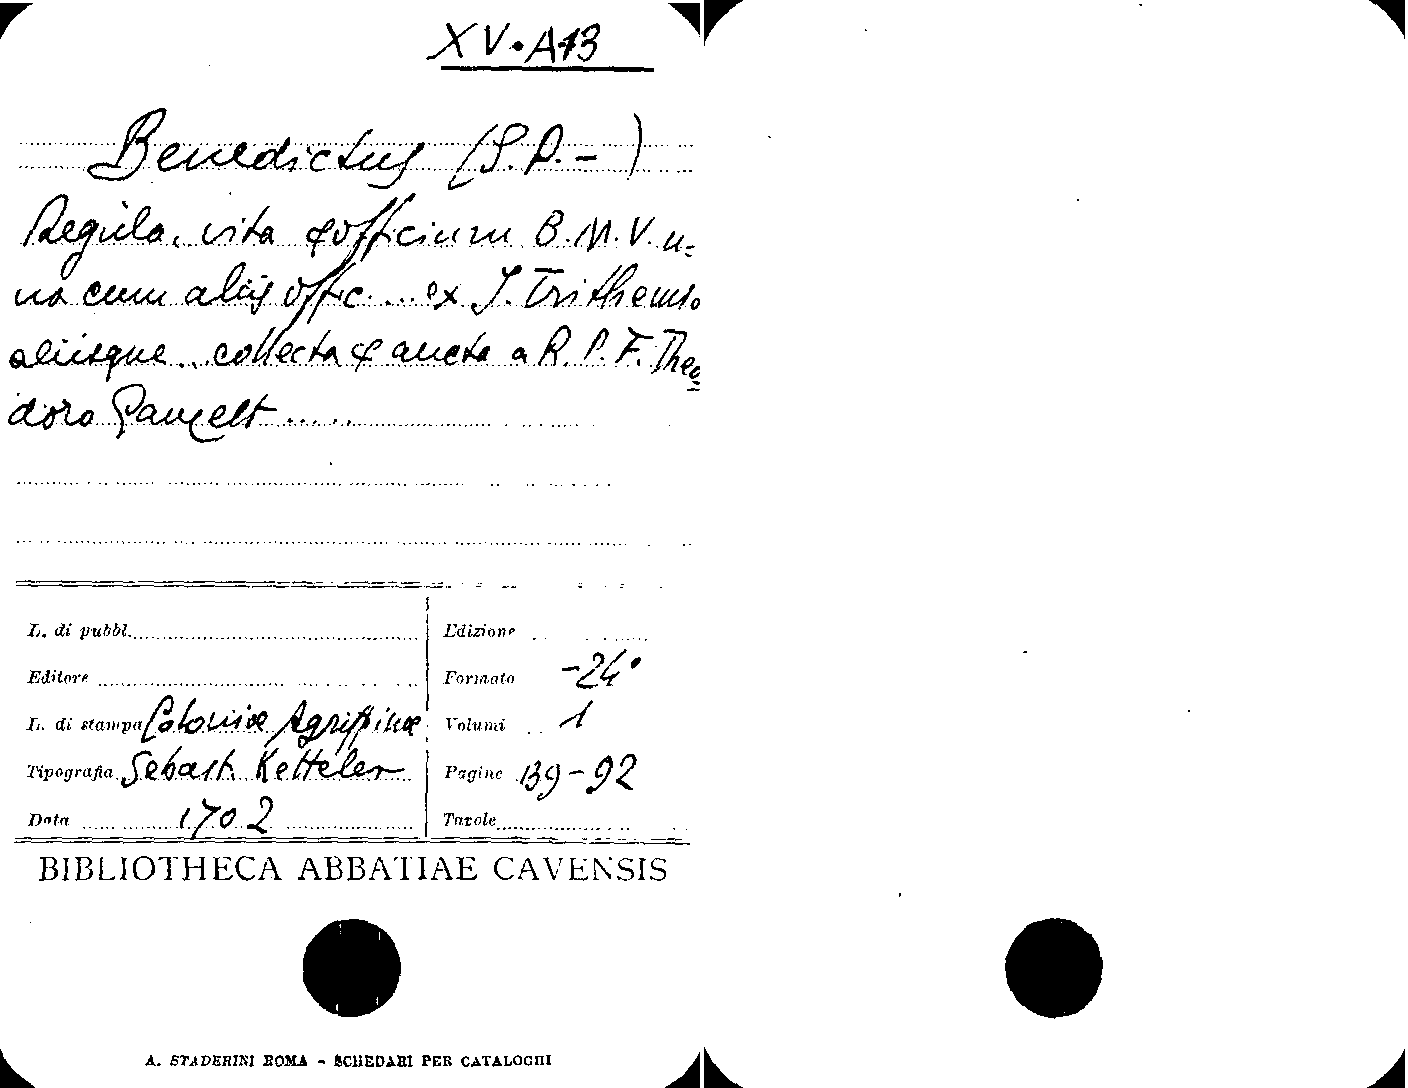 XV. A 13
Benedictus (S. P. - )
Regula, vita & officium B. M. V. u-
na cum aliis offic. ... ex J. Trithemio
aliisque .. collecta & aucta a R. P. F. Theo
doro .....
L. di pubbl.
Edizione
Editore
Formato -24°
L. di stampa Coloniae Agrippinae
Volumi 1
Tipografia Sebast. Ketteler
Pagine 139-92
Data 1702
Tavole
BIBLIOTHECA ABBATIAE CAVENSIS
A. STADERINI ROMA - SCHEDARI PER CATALOGHI